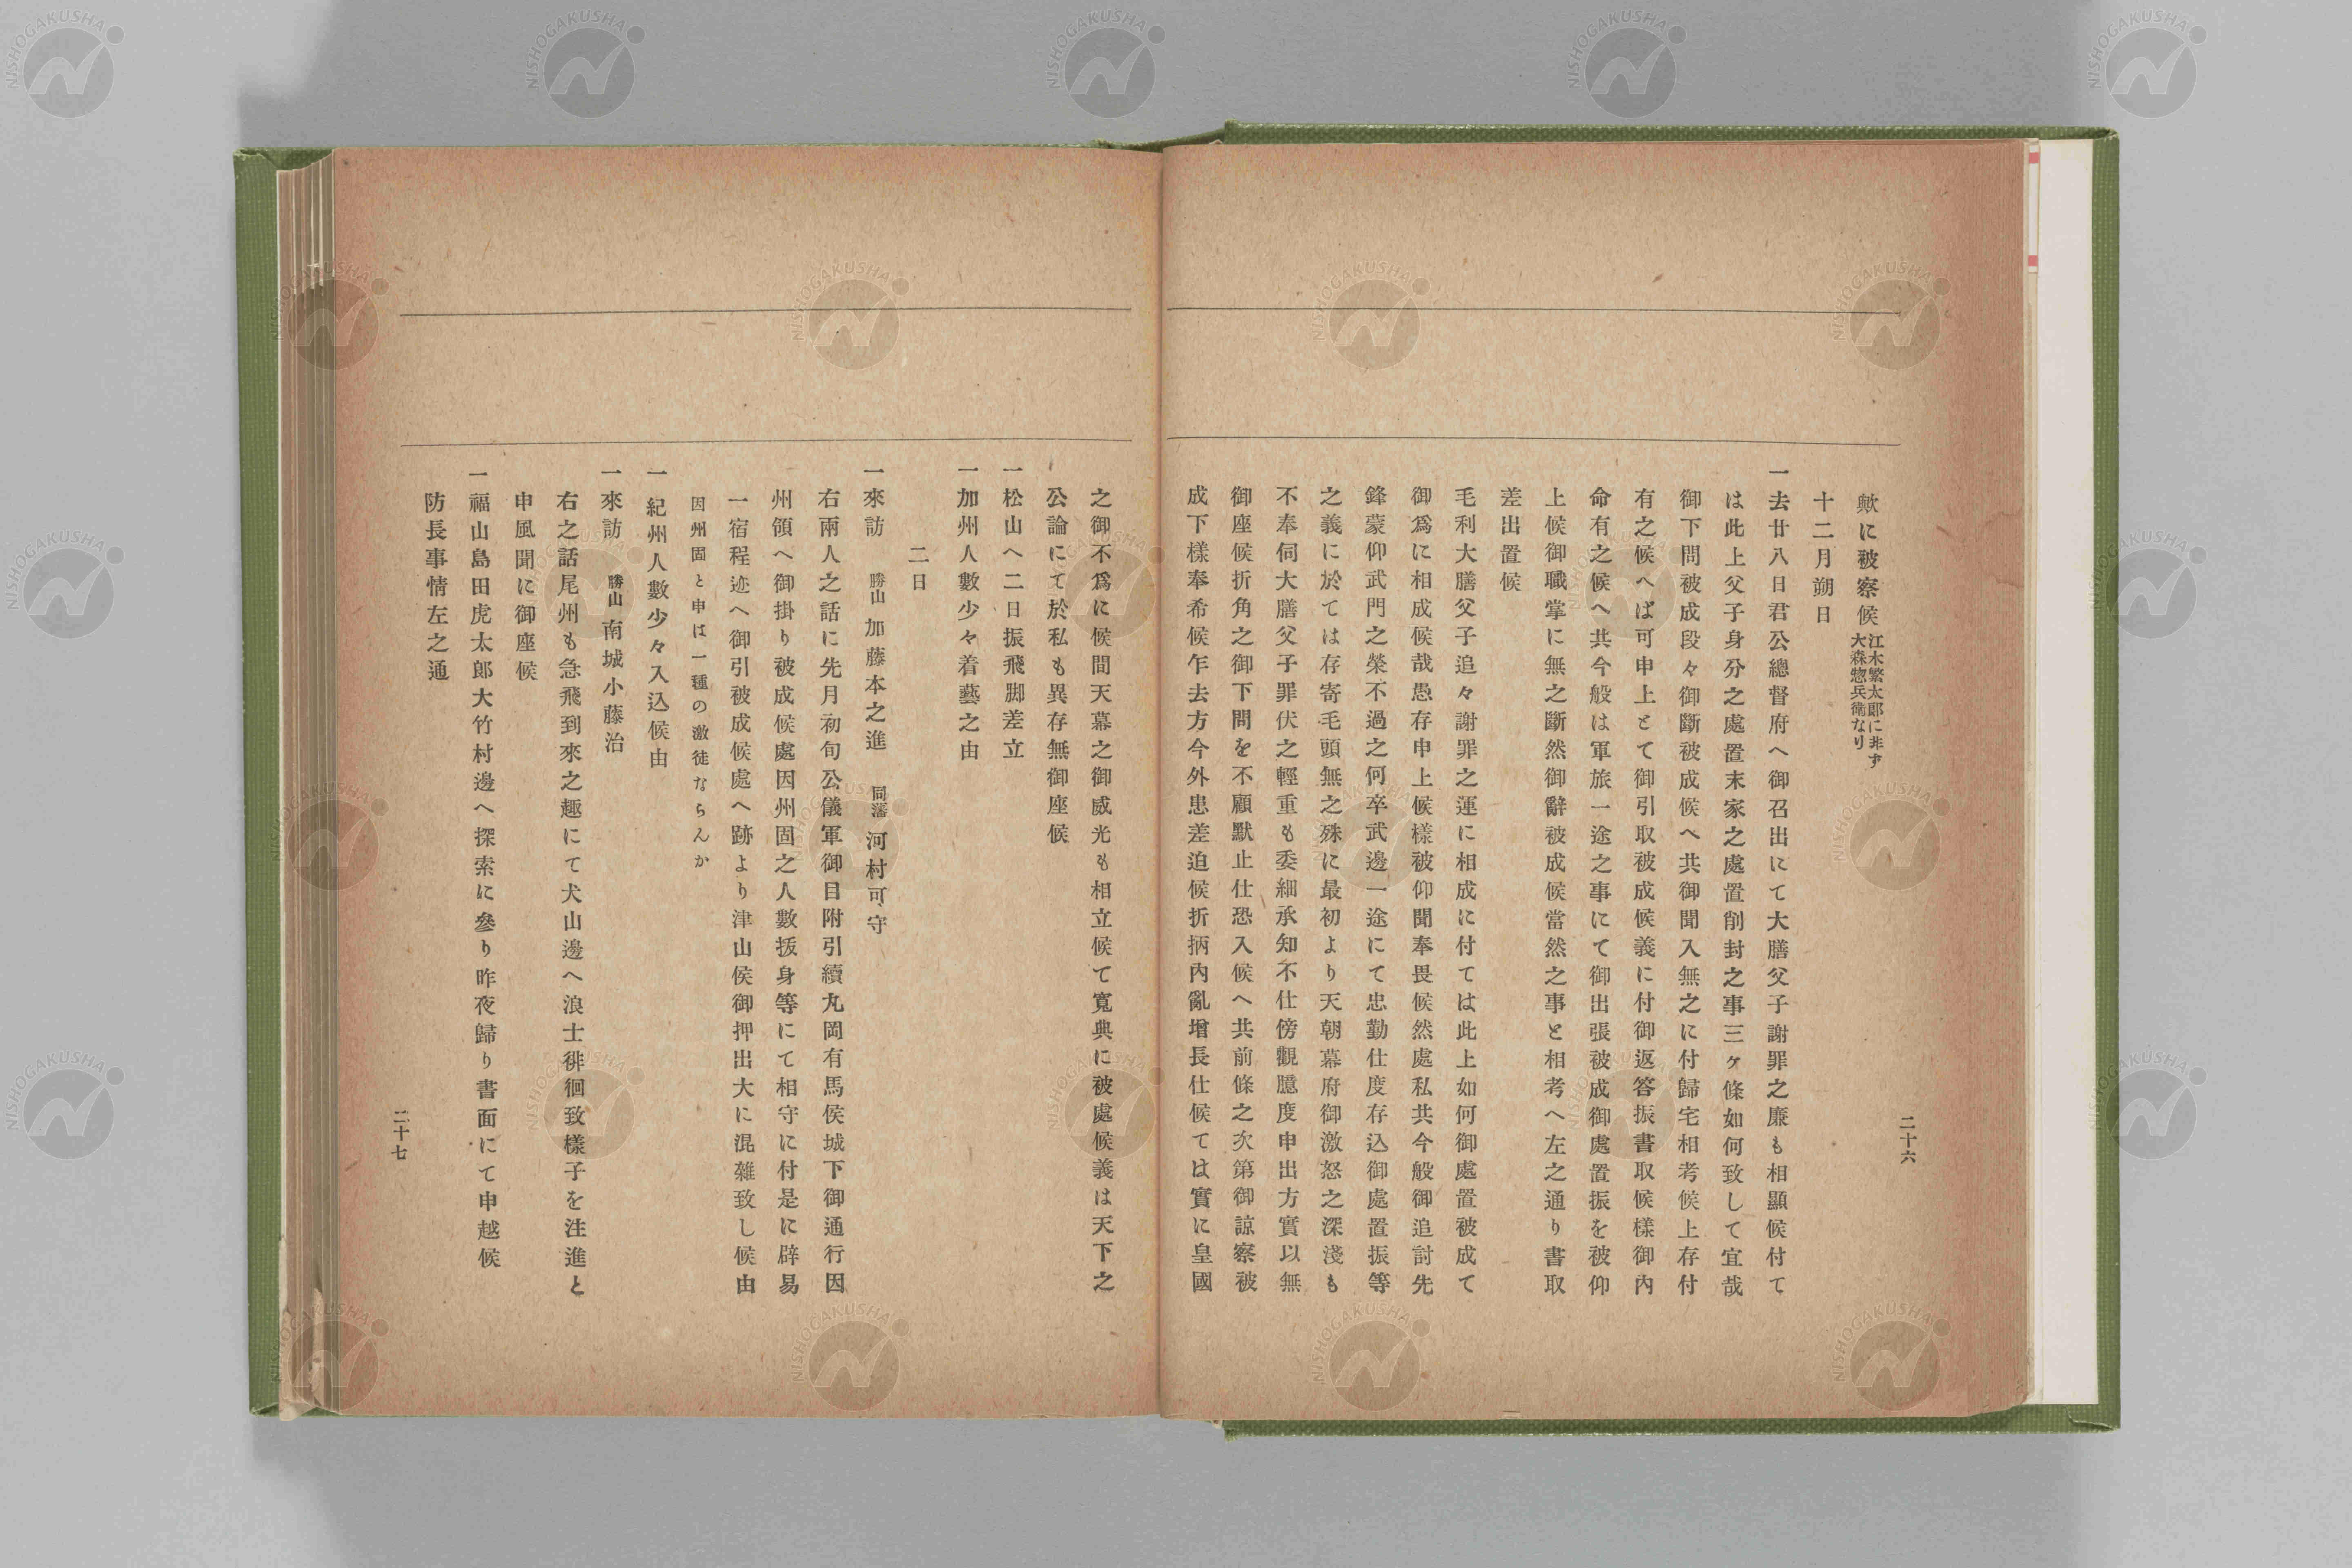 二十六
歟に被察候 江木繁太郎に非ず
大森惣兵衛なり
十二月朔日
一去廿八日君公總督府へ御召出にて大膳父子謝罪之廉も相顯候付て
は此上父子身分之處置末家之處置削封之事三ヶ條如何致して宜哉
御下問被成段々御斷被成候へ共御聞入無之に付歸宅相考候上存付
有之候へば可申上とて御引取被成候義に付御返答振書取候樣御內
命有之候へ共今般は軍旅一途之事にて御出張被成御處置振を被仰
上候御職掌に無之斷然御辭被成候當然之事と相考へ左之通り書取
差出置候
毛利大膳父子追々謝罪之運に相成に付ては此上如何御處置被成て
御爲に相成候哉愚存申上候樣被仰聞奉畏候然處私共今般御追討先
鋒蒙仰武門之榮不過之何卒武邊一途にて忠勤仕度存込御處置振等
之義に於ては存寄毛頭無之殊に最初より天朝幕府御激怒之深淺も
不奉伺大膳父子罪伏之輕重も委細承知不仕傍觀臆度申出方實以無
御座候折角之御下問を不顧默止仕恐入候へ共前條之次第御諒察被
成下樣奉希候乍去方今外患差迫候折柄內亂增長仕候ては實に皇國
之御不爲に候間天幕之御威光も相立候て寬典に被處候義は天下之
公論にて於私も異存無御座候
一松山へ二日振飛脚差立
一加州人數少々着藝之由
二日
一來訪 勝山 加藤本之進 同藩 河村可守
右兩人之話に先月初旬公儀軍御目附引續丸岡有馬侯城下御通行因
州領へ御掛り被成候處因州固之人數拔身等にて相守に付是に辟易
一宿程迹へ御引被成候處へ跡より津山侯御押出大に混雜致し候由
因州固と申は一種の激徒ならんか
一紀州人數少々入込候由
一來訪 勝山 南城小藤治
右之話尾州も急飛到來之趣にて犬山邊へ浪士徘徊致樣子を注進と
申風聞に御座候
一福山島田虎太郎大竹村邊へ探索に參り昨夜歸り書面にて申越候
防長事情左之通
二十七
NISHOGAKUSHA